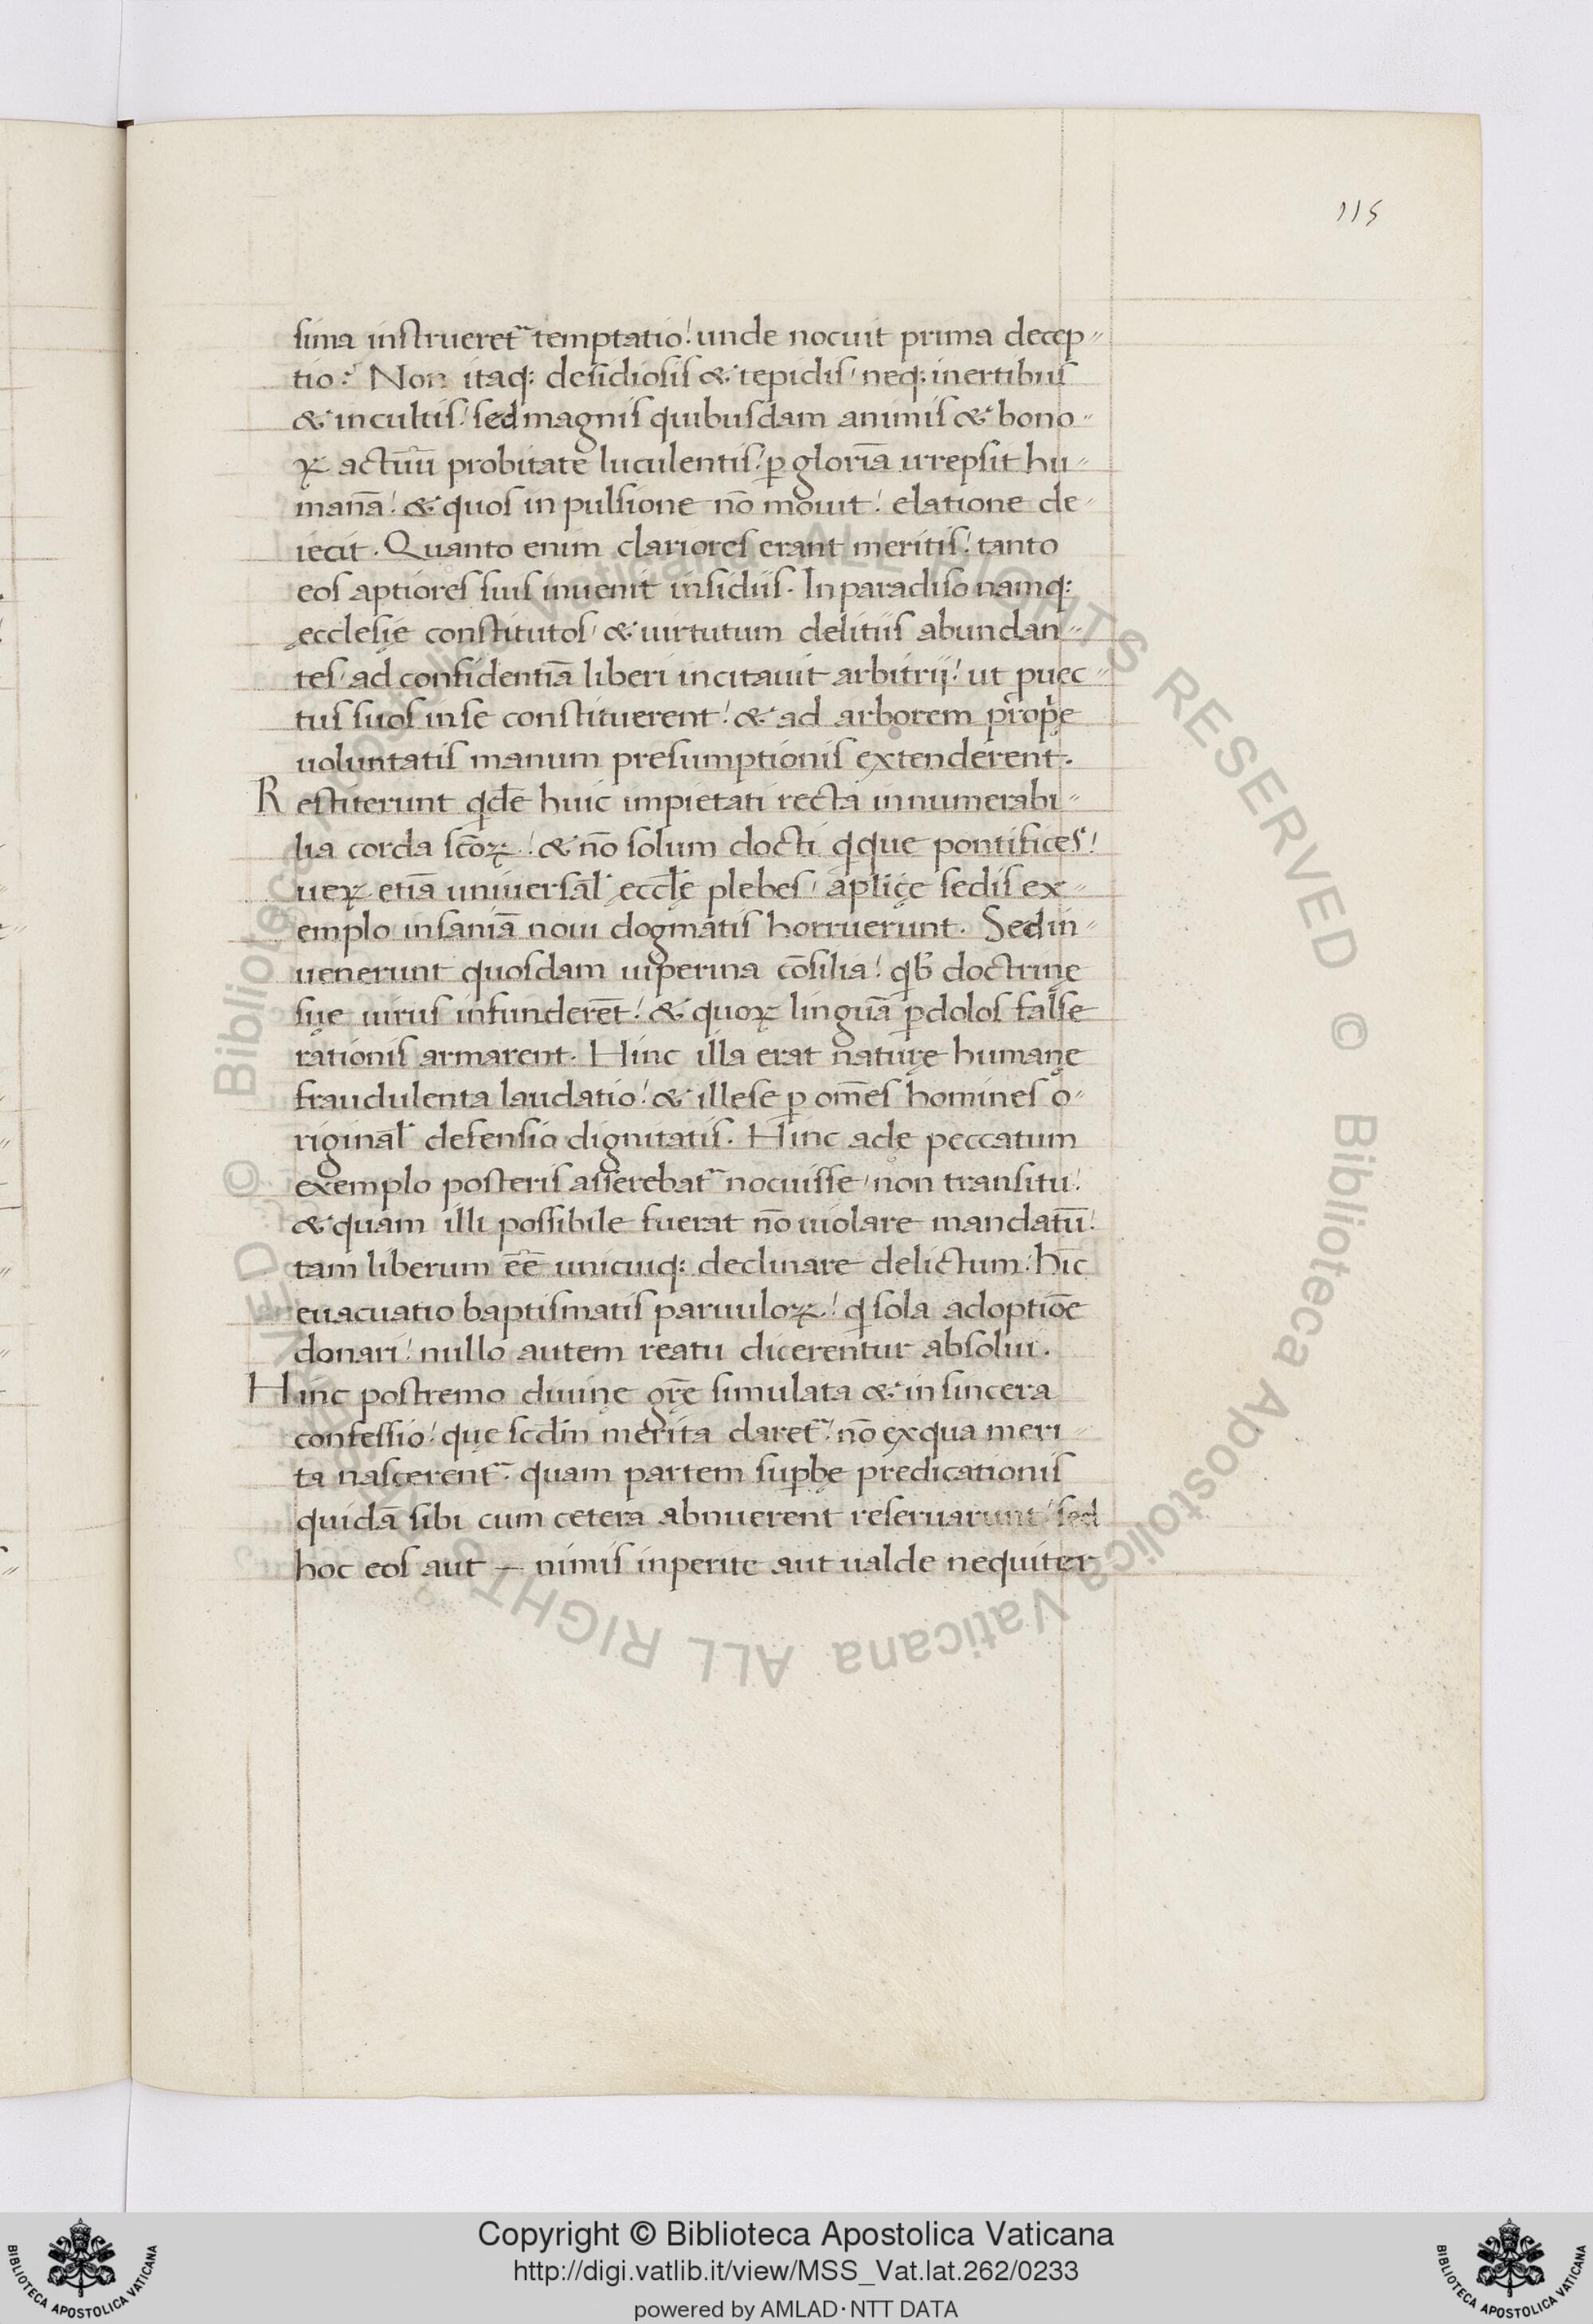 115
sima instrueret᷒ temptatio! unde nocuit prima decep〃
tio? Non itaq: desidiosis & tepidis / neq: inertibus
& incultis / sed magnis quibusdam animis & bono〃
ꝝ actuū probitate luculentis! ꝑ gloriā irrepsit hu〃
manā! & quos in pulsione nō mouit! elatione de〃
iecit. Quanto enim clariores erant meritis! tanto
eos aptiores suis inuenit insidiis. In paradiso namq:
ęcclesię constitutos / & uirtutum delitiis abundan〃
tes / ad confidentiā liberi incitauit arbitrij! ut ꝓuec〃
tus suos in se constituerent! & ad arborem ꝓprię
uoluntatis manum presumptionis extenderent.
Restiterunt qdē huic impietati recta innumerabi〃
lia corda scōꝝ! & nō solum docti qque pontifices!
ueꝝ etiā uniuersal' ęccłę plebes / aplicę sedis ex〃
emplo insaniā noui dogmatis horruerunt. Sed in〃
uenerunt quosdam uiperina cōsilia! qb' doctrinę
suę uirus infunderēt! & quoꝝ linguā ꝑ dolos false
rationis armarent. Hinc illa erat naturę humanę
fraudulenta laudatio! & illese ꝑ om̄es homines o〃
riginal' defensio dignitatis. Hinc adę peccatum
exemplo posteris asserebat᷒ nocuisse / non transitu!
& quam illi possibile fuerat nō uiolare mandatū!
tam liberum ēē unicuiq: declinare delictum. hīc
euacuatio baptismatis paruuloꝝ! q sola adoptiōe
donari! nullo autem reatu dicerentur absolui.
Hinc postremo diuinę gr̄ę simulata & in sincera
confessio! quę scdm merita daret᷒! nō ex qua meri〃
ta nascerent᷒. quam partem supbę predicationis
quidā sibi cum cetera abnuerent reseruarunt / sed
hoc eos aut — nimis inperite aut ualde nequiter
Copyright © Biblioteca Apostolica Vaticana
http://digi.vatlib.it/view/MSS_Vat.lat.262/0233
powered by AMLAD·NTT DATA